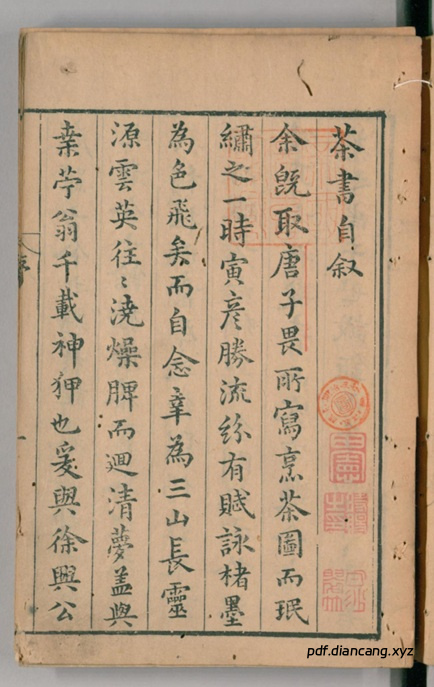 茶書自叙
余既取唐子畏所寫烹茶圖而珉
繡之一時寅彥勝流紛有賦詠楮墨
為色飛矣而自念幸為三山長靈
源雲英往〻澆燥脾而迴清夢蓋與
桒苧翁千載神狎也爰與徐興公
pdf.diancang.xyz